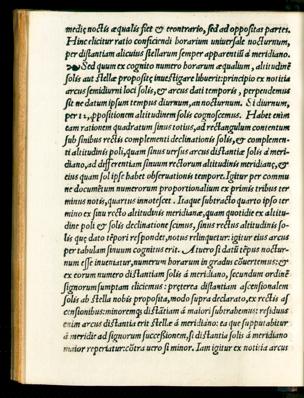 medię noctis æqualis fiet & econtrario, sed ad oppositas partes.
Hinc elicitur ratio conficiendi horarium uniuersale nocturnum,
per distantiam alicuius stellarum semper apparentiũ à meridiano.
Sed quum ex cognito numero horarum æqualium, altitudinẽ
solis aut stellæ propositę inuestigare libuerit: principio ex notitia
arcus semidiurni loci solis, & arcus dati temporis, perpendemus
sit ne datum ipsum tempus diurnum, an nocturnum. Si diurnum,
per 12, positionem altitudinem solis cognoscemus. Habet enim
eam rationem quadratum sinus totius, ad rectangulum contentum
sub sinibus rectis complementi declinationis solis, & complemen-
ti altitudinis poli, quam sinus uersus arcus distantiæ solis à meri-
diano, ad differentiam sinuum rectorum altitudinis meridianę, &
eius quam sol ipse habet obseruationis tempore. Igitur per commu
ne documẽtum numerorum proportionalium ex primis tribus ter
minus notis, quartus innotescet. Itaque subtracto quarto ipso ter
mino ex sinu recto altitudinis meridianę, quam quotidie ex altitu-
dine poli & solis declinatione scimus, sinus rectus altitudinis so-
lis quę dato tẽpori respondet, notus relinquetur: igitur eius arcus
per tabulam sinuum cognitus erit. At uero si datũ tẽpus noctur-
num esse inueniatur, numerum horarum in gradus cõuertemus: &
ex eorum numero distantiam solis à meridiano, secundum ordinẽ
signorum sumptam eliciemus: pręterea distantiam ascensionalem
solis ab stella nobis proposita, modo supra declarato, ex rectis as
censionibus: minoremq; distãtiam à maiori subtrahemus: residuus
enim arcus distantia erit stellæ à meridiano: ea que supputabitur
à meridie ad signorum successionem, si distantia solis à meridiano
maior reperiatur: cõtra uero si minor. Iam igitur ex notitia arcus